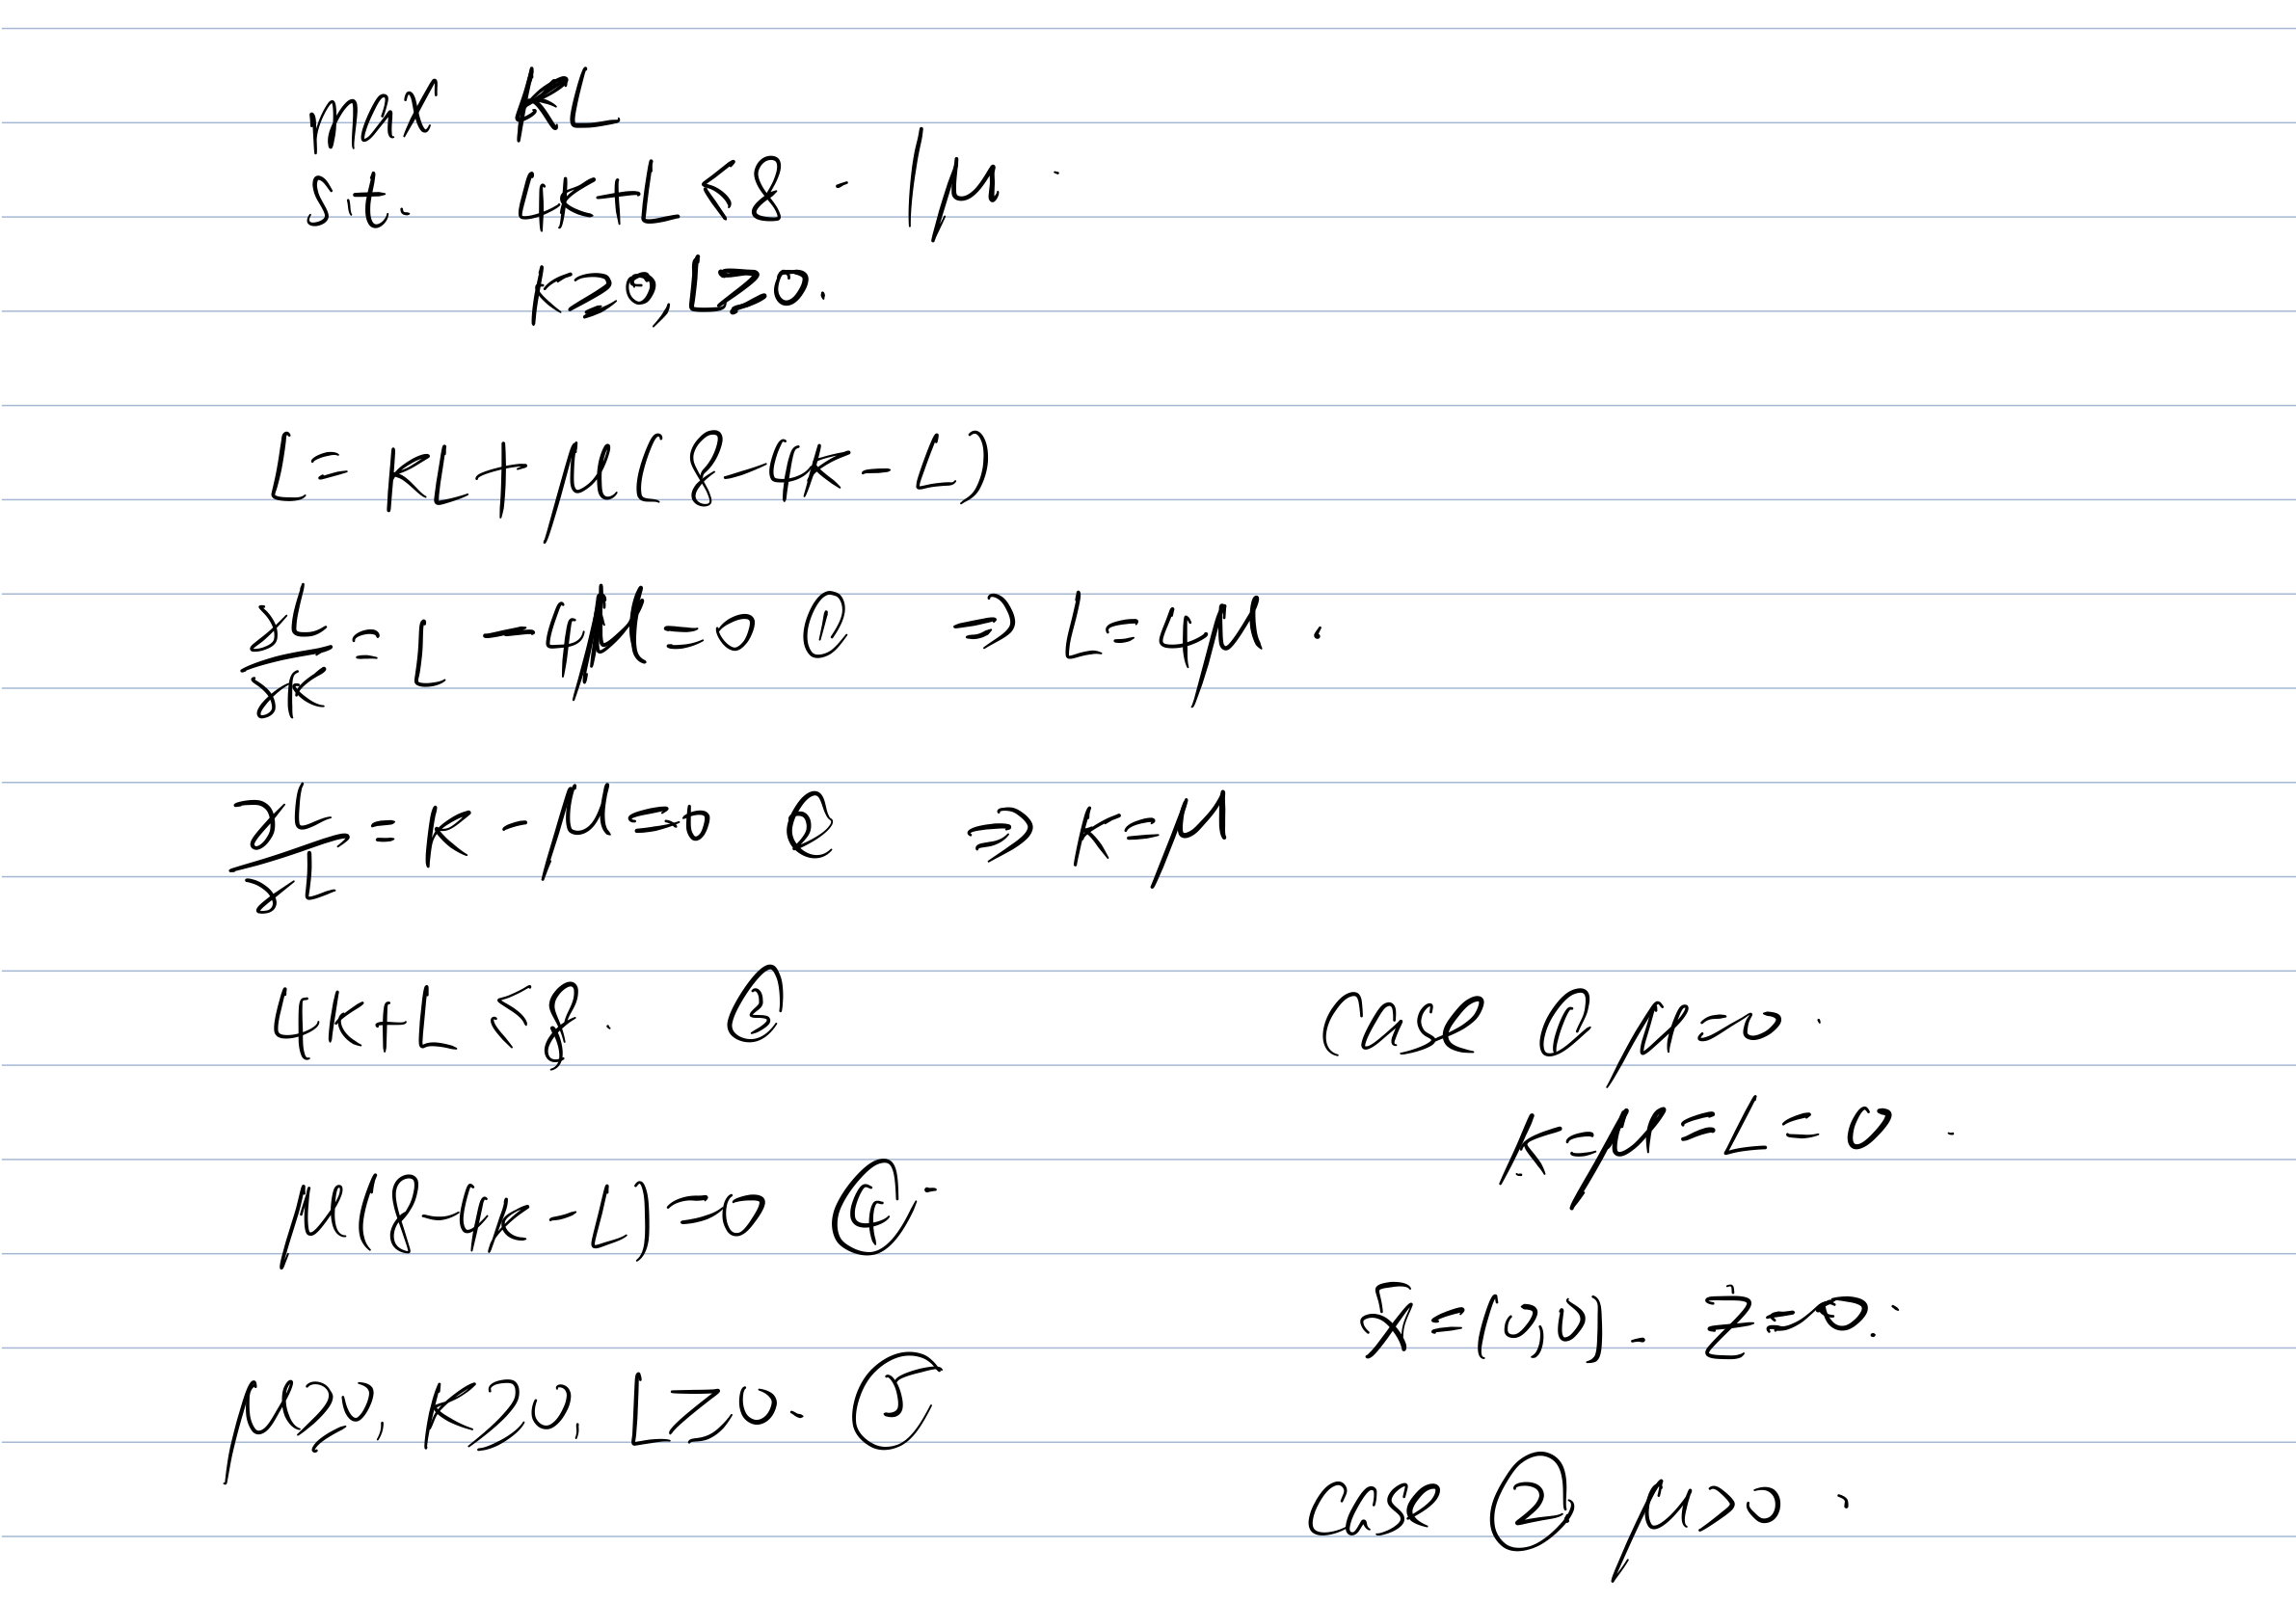 max KL
s.t. 4K+L ≤ 8 - | μ.
K≥0, L≥0.
L = KL + μ(8-4K-L)
∂L/∂K = L - 4μ = 0 ① ⇒ L = 4μ.
∂L/∂L = K - μ = 0 ② ⇒ K = μ
4K+L ≤ 8. ③
μ(8-4K-L) = 0 ④.
μ≥0, K≥0, L≥0. ⑤
case ① μ=0.
K=μ=L=0.
x̄=(0,0). Z=0.
case ② μ>0.